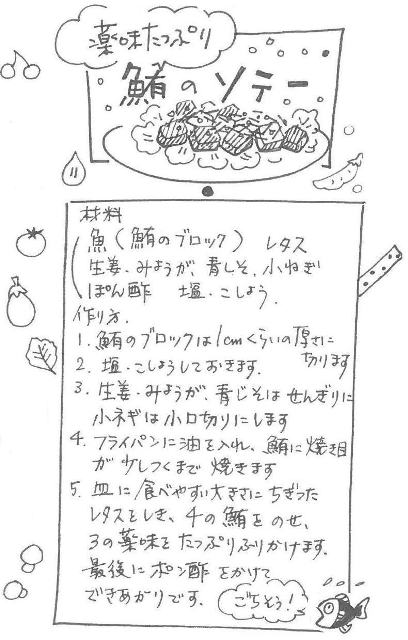 薬味たっぷり
鮪のソテー
材料
魚(鮪のブロック) レタス
生姜・みょうが、青しそ、小ねぎ
ぽん酢 塩・こしょう
作り方.
1. 鮪のブロックは1cmくらいの厚さに
切ります
2. 塩・こしょうしておきます.
3. 生姜・みょうが、青じそはせんぎりに
小ネギは小口切りにします
4. フライパンに油を入れ、鮪に焼き目
が少しつくまで焼きます
5. 皿に食べやすい大きさにちぎった
レタスをしき、4の鮪をのせ、
3の薬味をたっぷりふりかけます.
最後にポン酢をかけて
できあがりです.
ごちそう!